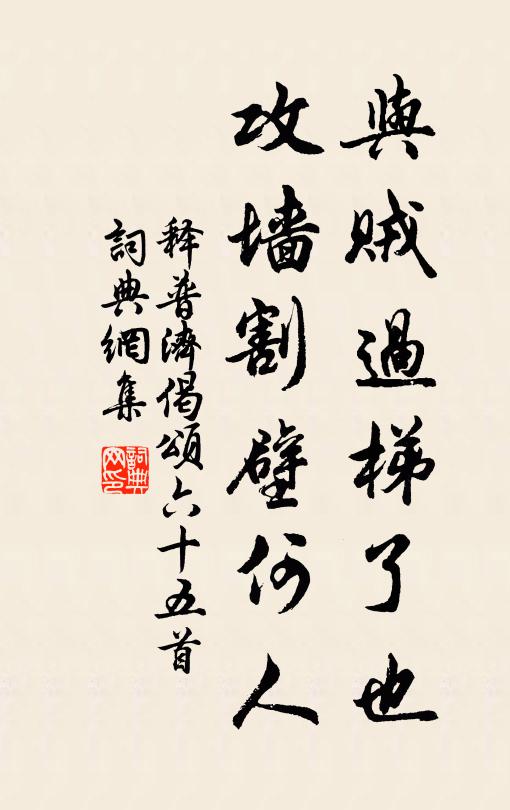 與賊過梯了也
攻墙割壁何人
释普濟偈頌六十五首
詞典網集
詞典
网印